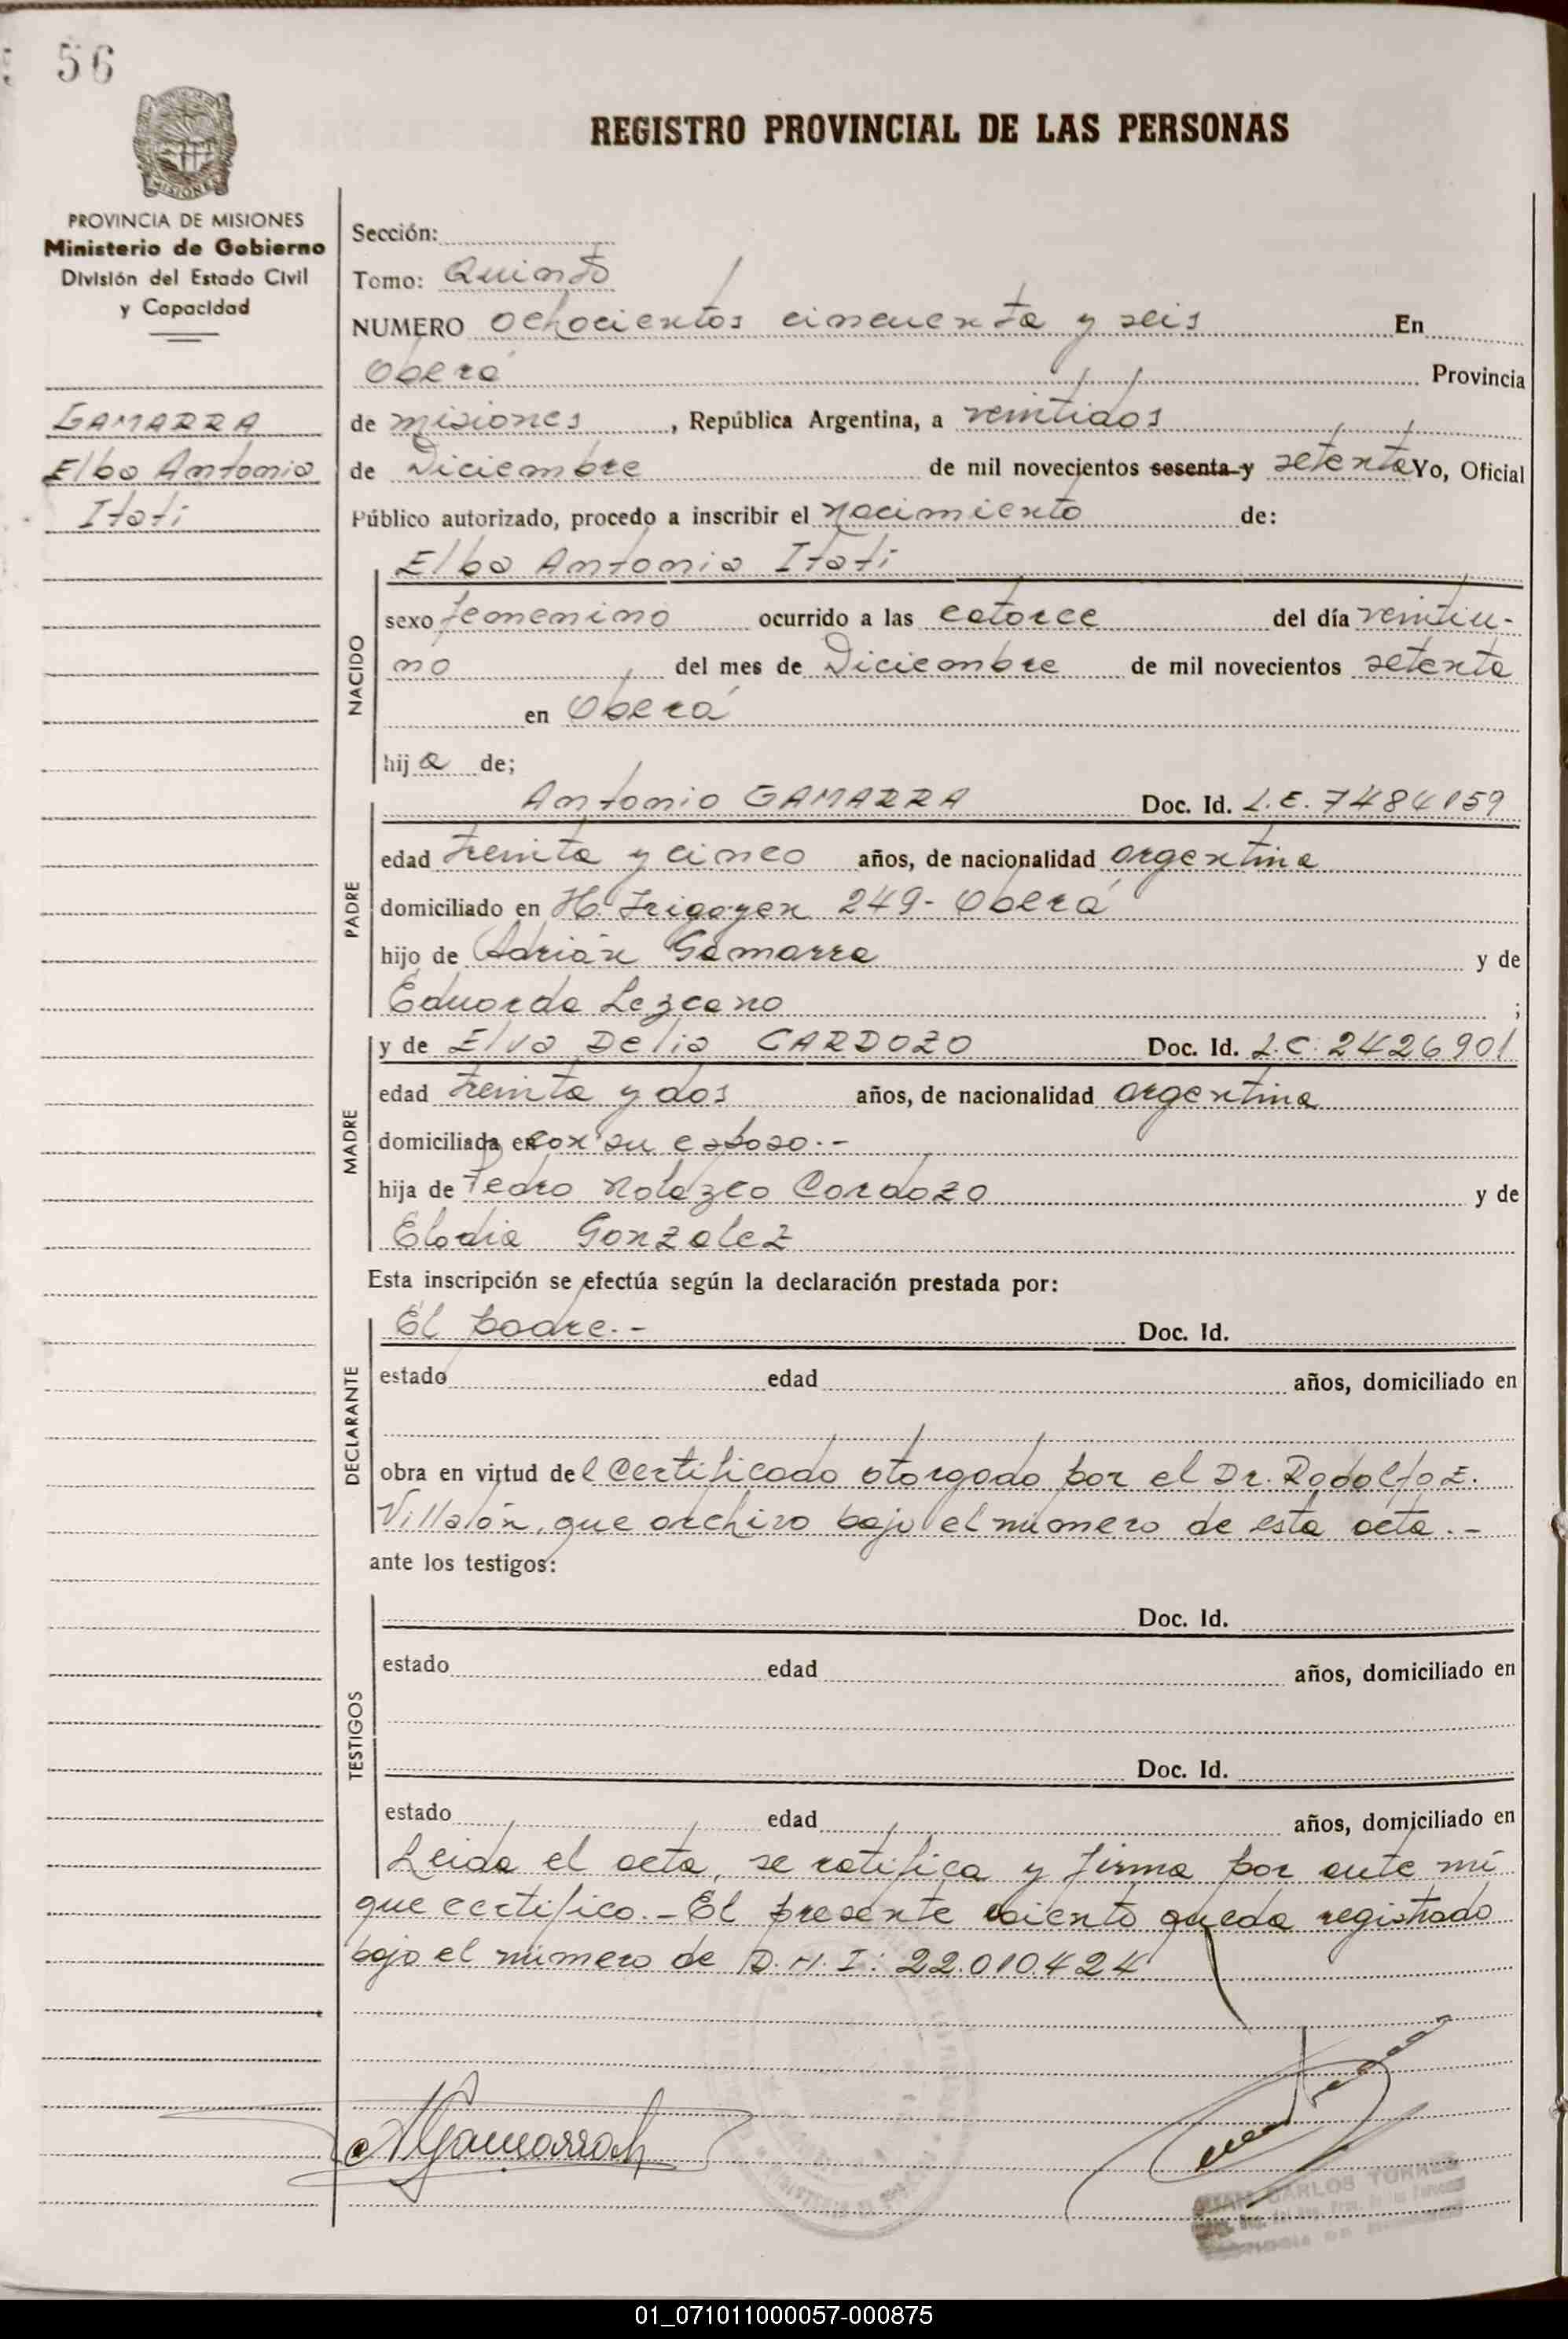 56
MISIONES
PROVINCIA DE MISIONES
Ministerio de Gobierno
División del Estado Civil
y Capacidad
GAMARRA
Elba Antonia
Itati
REGISTRO PROVINCIAL DE LAS PERSONAS
Sección:
Tomo: Quinto
NUMERO Ochocientos cincuenta y seis En
Oberá Provincia
de misiones, República Argentina, a veintidos
de Diciembre de mil novecientos sesenta y setenta Yo, Oficial
Público autorizado, procedo a inscribir el nacimiento de:
NACIDO
Elba Antonia Itati
sexo femenino ocurrido a las catorce del día veintiu-
no del mes de Diciembre de mil novecientos setenta
en Oberá
hija de;
PADRE
Antonio GAMARRA Doc. Id. L.E. 7484159
edad treinta y cinco años, de nacionalidad argentina
domiciliado en H. Irigoyen 249- Oberá
hijo de Adrián Gamarra y de
Eduarda Lezcano ;
MADRE
y de Elva Delia CARDOZO Doc. Id. L.C. 2426901
edad treinta y dos años, de nacionalidad argentina
domiciliada en con su esposo.-
hija de Pedro Nolazco Cardozo y de
Elodia Gonzalez
Esta inscripción se efectúa según la declaración prestada por:
DECLARANTE
El padre.- Doc. Id.
estado edad años, domiciliado en
obra en virtud del Certificado otorgado por el Dr. Rodolfo E.
Villalón, que archivo bajo el número de esta acta.-
ante los testigos:
TESTIGOS
Doc. Id.
estado edad años, domiciliado en
Doc. Id.
estado edad años, domiciliado en
Leida el acta, se ratifica y firma por ante mi
que certifico.- El presente asiento queda registrado
bajo el número de D.N.I: 22.010.424
AGamarra
JUAN CARLOS TORRES
01_071011000057-000875